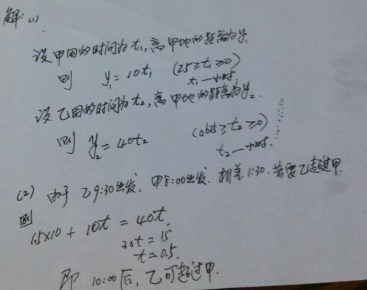 解: (1)
设甲用的时间为t₁,离甲地的距离为y₁
则 y₁=10t₁ (2.5≥t₁≥0)
t₁—小时.
设乙用的时间为t₂,离甲地的距离为y₂.
则 y₂=40t₂ (0.625≥t₂≥0)
t₂—小时.
(2) 由于乙9:30出发, 甲8:00出发. 相差1:30. 若要乙超过甲.
则
1.5×10+10t=40t.
30t=15
t=0.5.
即 10:00后, 乙可超过甲.